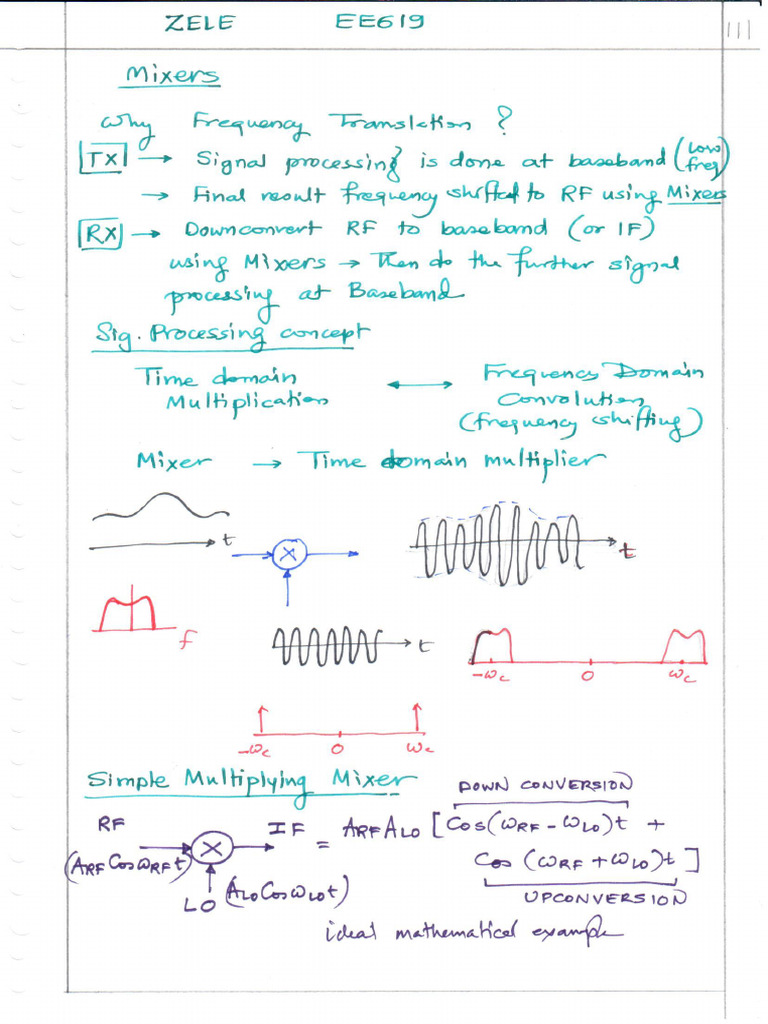 ZELE EE619
111
Mixers
Why Frequency Translation ?
TX → Signal processing is done at baseband (low freq)
→ Final result frequency shifted to RF using Mixers
RX → Downconvert RF to baseband (or IF)
using Mixers → Then do the further signal
processing at Baseband
Sig. Processing concept
Time domain ↔ Frequency Domain
Multiplication Convolution
(frequency shifting)
Mixer → Time domain multiplier
t
×
t
f
t
-ωc 0 ωc
-ωc 0 ωc
Simple Multiplying Mixer
DOWN CONVERSION
RF × IF = ARF ALO [Cos(ωRF - ωLO)t +
(ARF Cos ωRF t) Cos (ωRF + ωLO)t]
LO (ALO Cos ωLO t) UPCONVERSION
ideal mathematical example